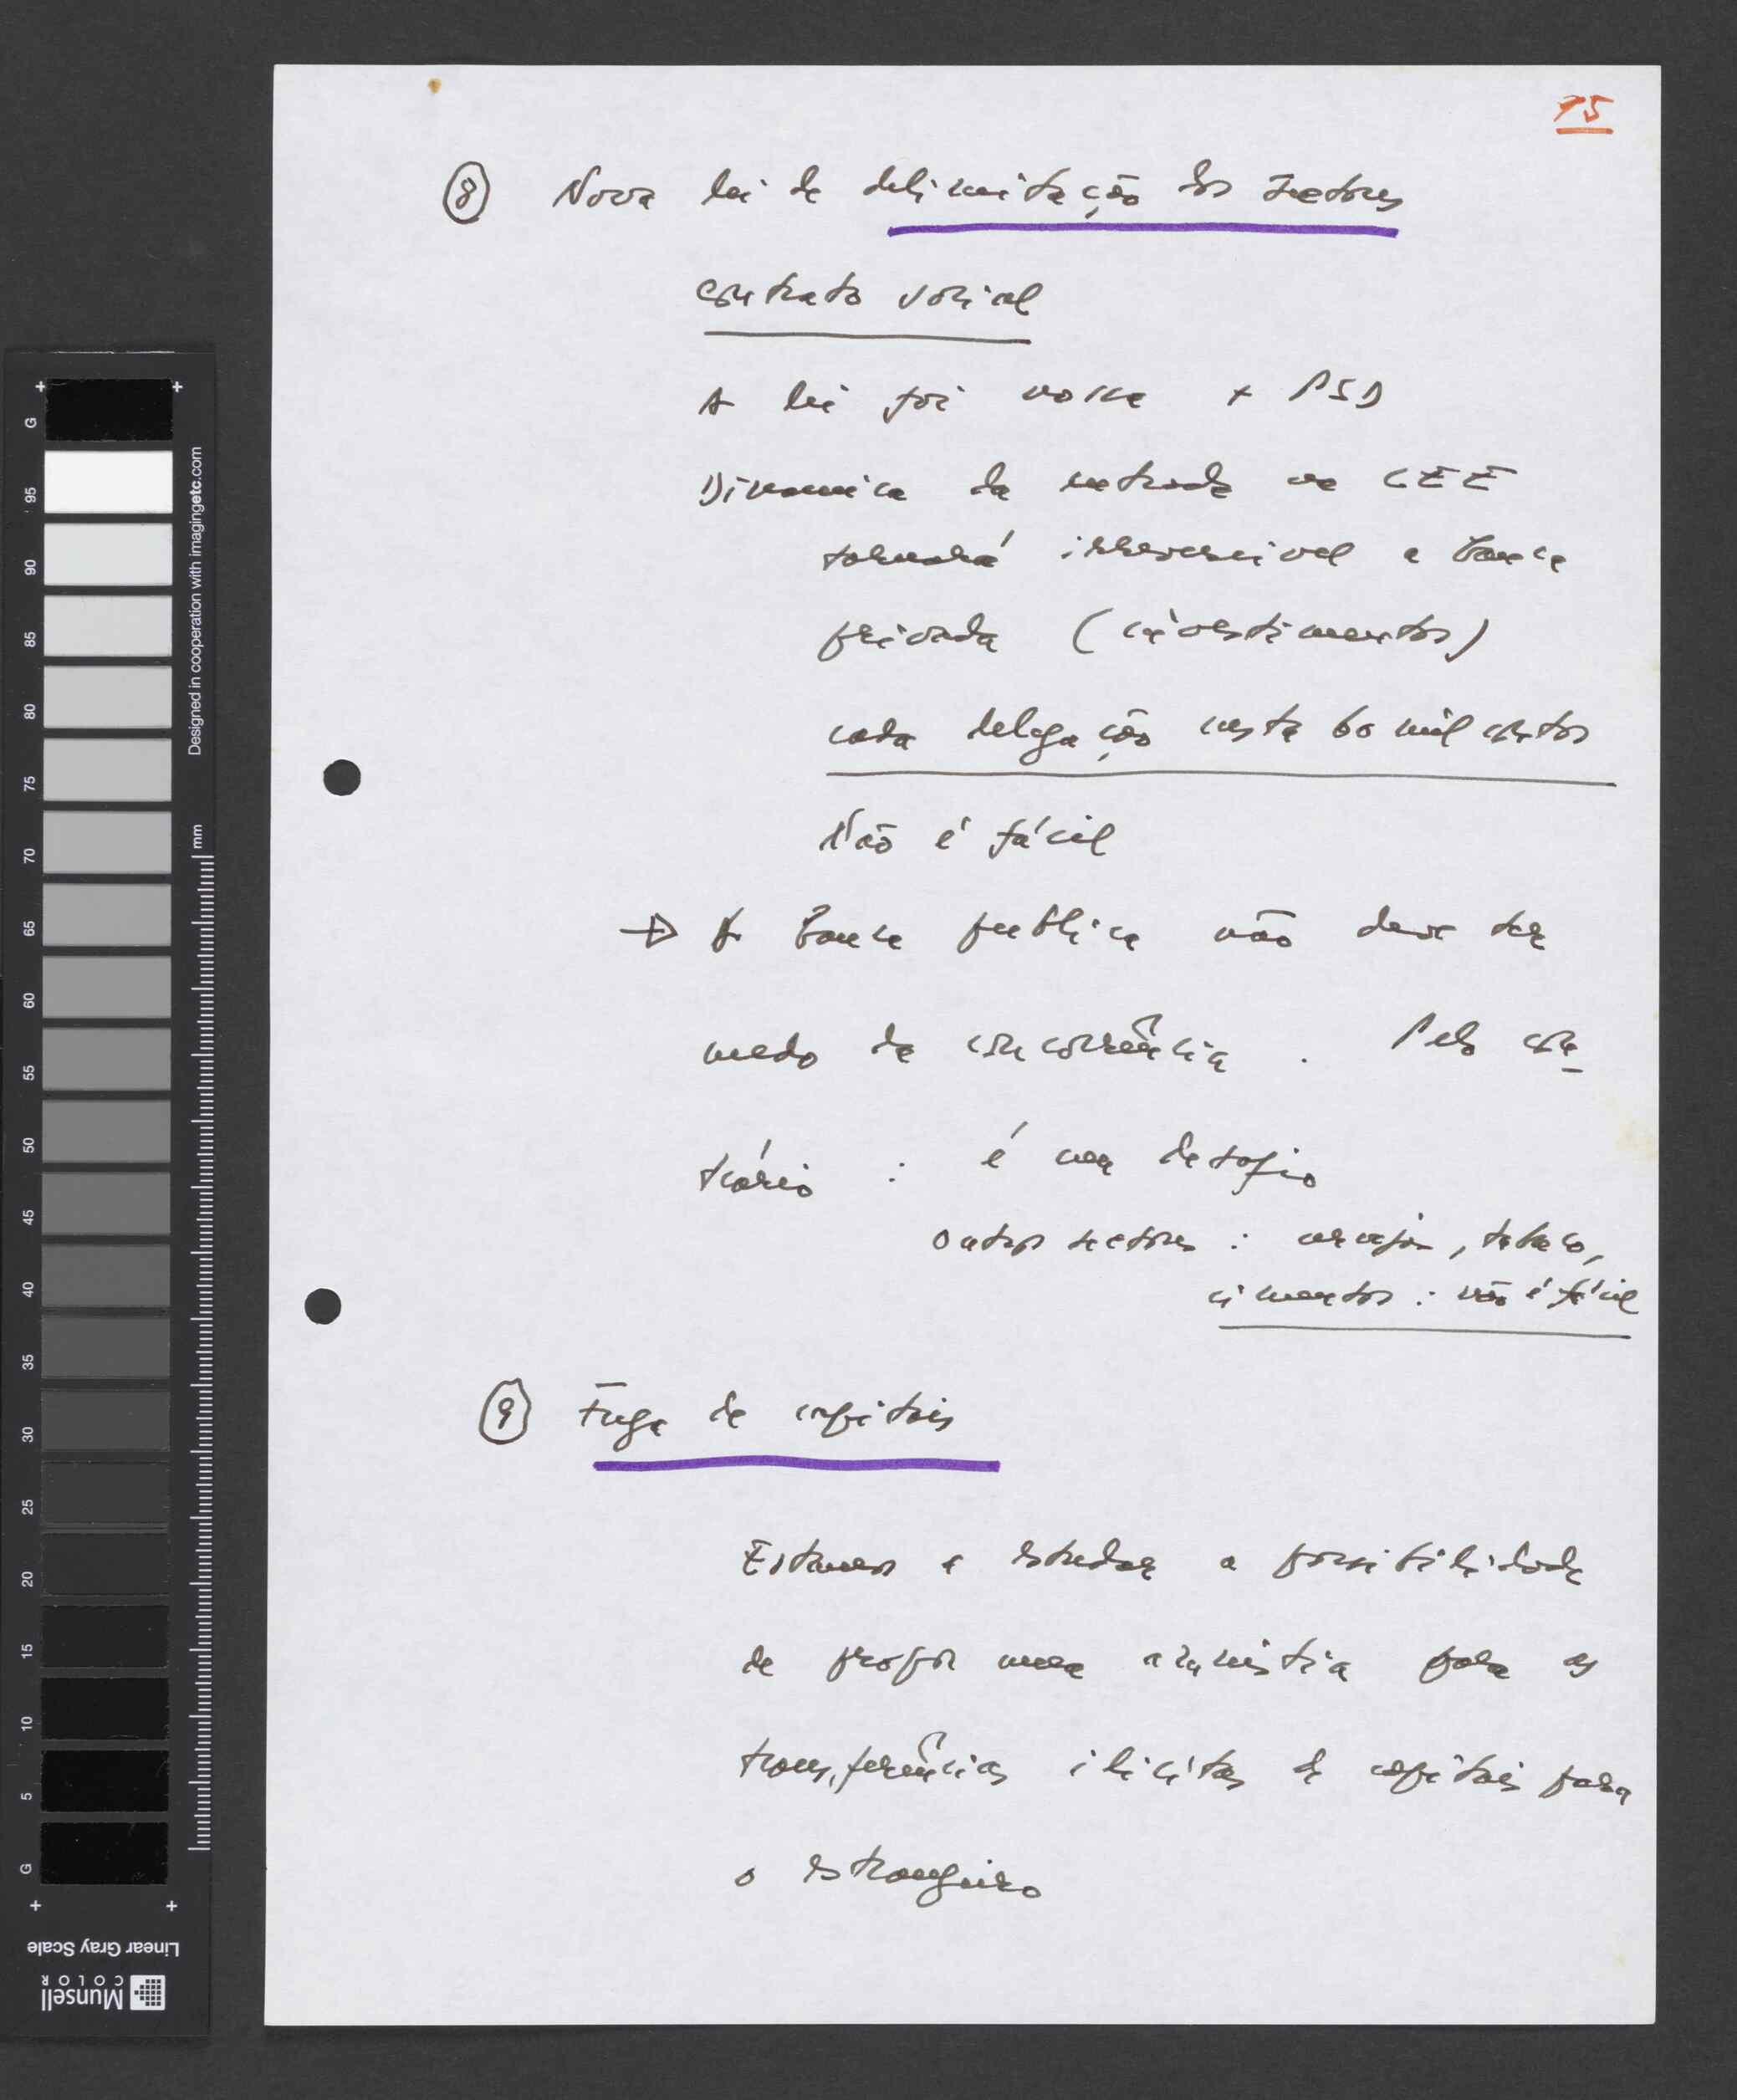 15
8 Nova lei de delimitação dos sectores
contrato social
A lei foi nossa + PSD
Dinamica da entrada na CEE
tornará irreversivel a banca
privada (investimentos)
cada delegação custa 60 mil contos
Não é fácil
→ A Banca publica não deve ter
medo da concorrência. Pelo con
trário : é um desafio
outros sectores : cervejas, tabaco,
cimentos : não é fácil
9 Fuga de capitais
Estamos a estudar a possibilidade
de propor uma amnistia para as
transferências ilicitas de capitais para
o estrangeiro
G
95
90
85
80
75
70
65
60
55
50
45
40
35
30
25
20
15
10
5
G
mm
Designed in cooperation with imagingetc.com
Linear Gray Scale
Munsell
COLOR